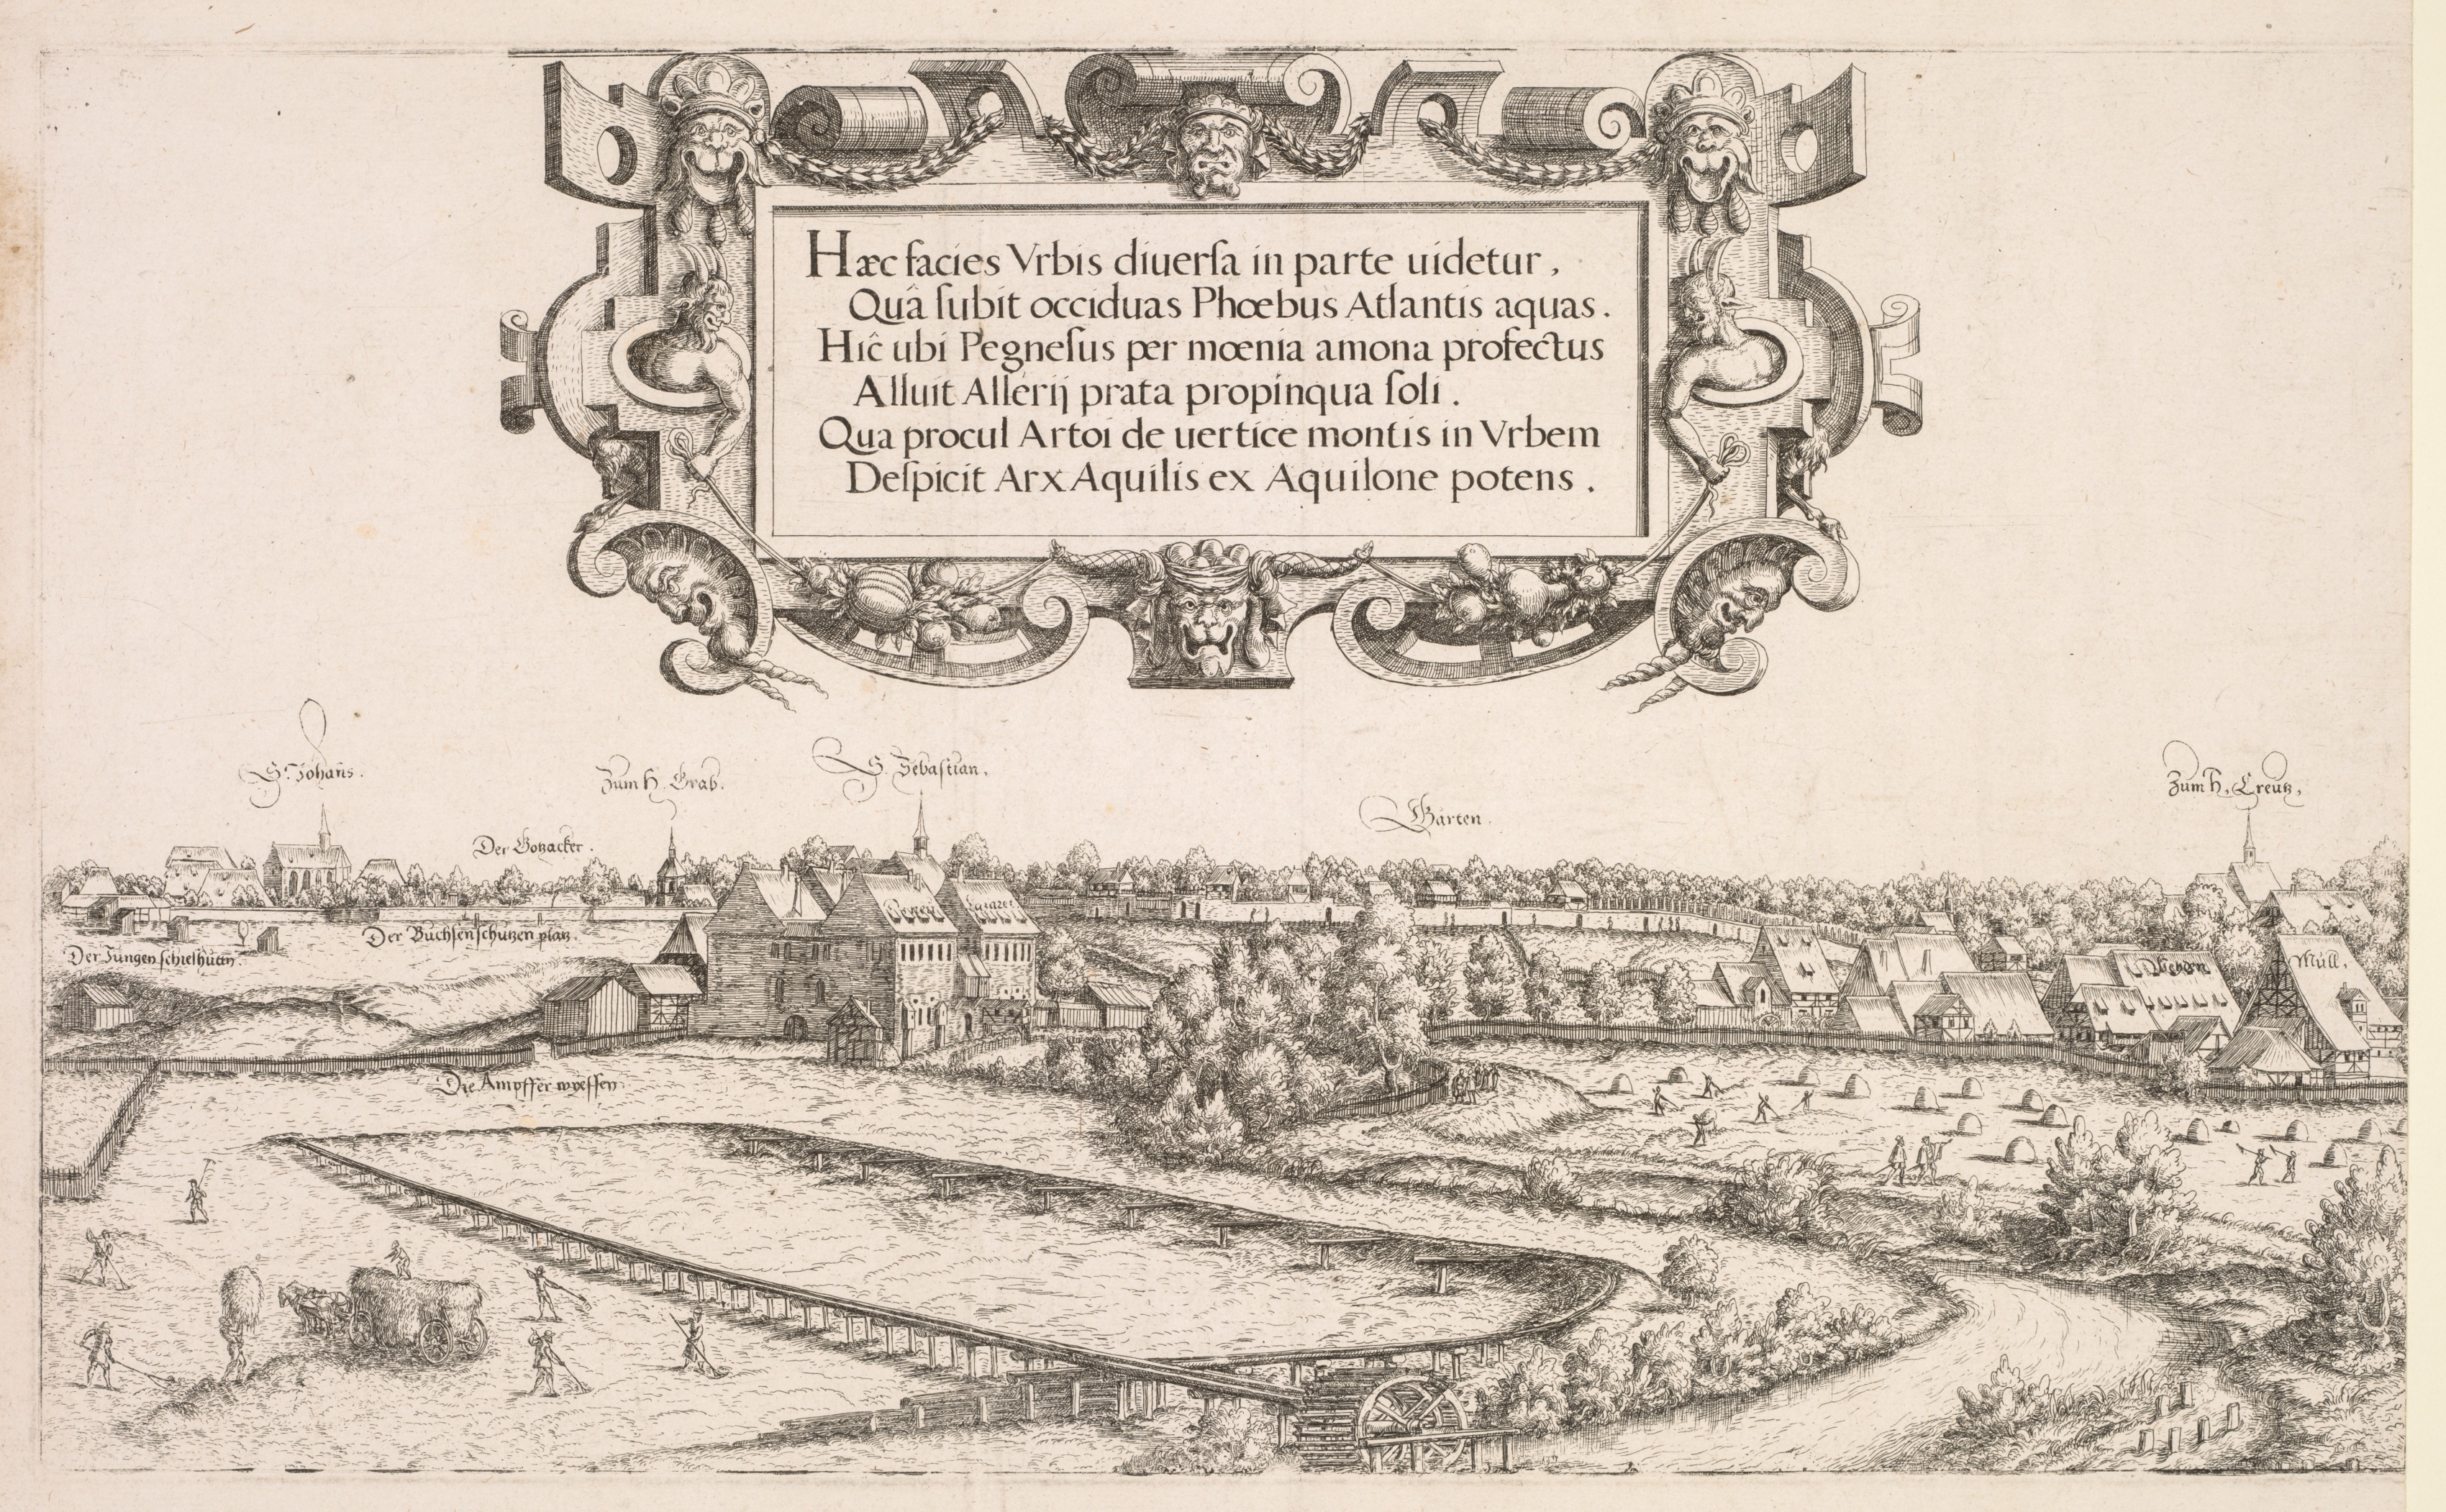 Hæc facies Vrbis diuerſa in parte uidetur,
Quâ ſubit occiduas Phœbus Atlantis aquas.
Hîc ubi Pegneſus per mœnia amona profectus
Alluit Allerij prata propinqua ſoli.
Qua procul Artoi de uertice montis in Vrbem
Deſpicit Arx Aquilis ex Aquilone potens.
S. Johans.
Zum H. Grab.
S. Sebastian.
Gärten.
Zum H. Creutz,
Der Gotzacker.
Der Büchſenſchutzen platz.
Der Jungen ſchieſhütten.
Müll.
Die Ampffer wyeſſen.